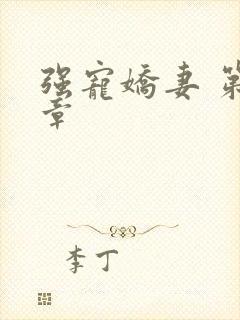 强寵嬌妻 第
章
李丁